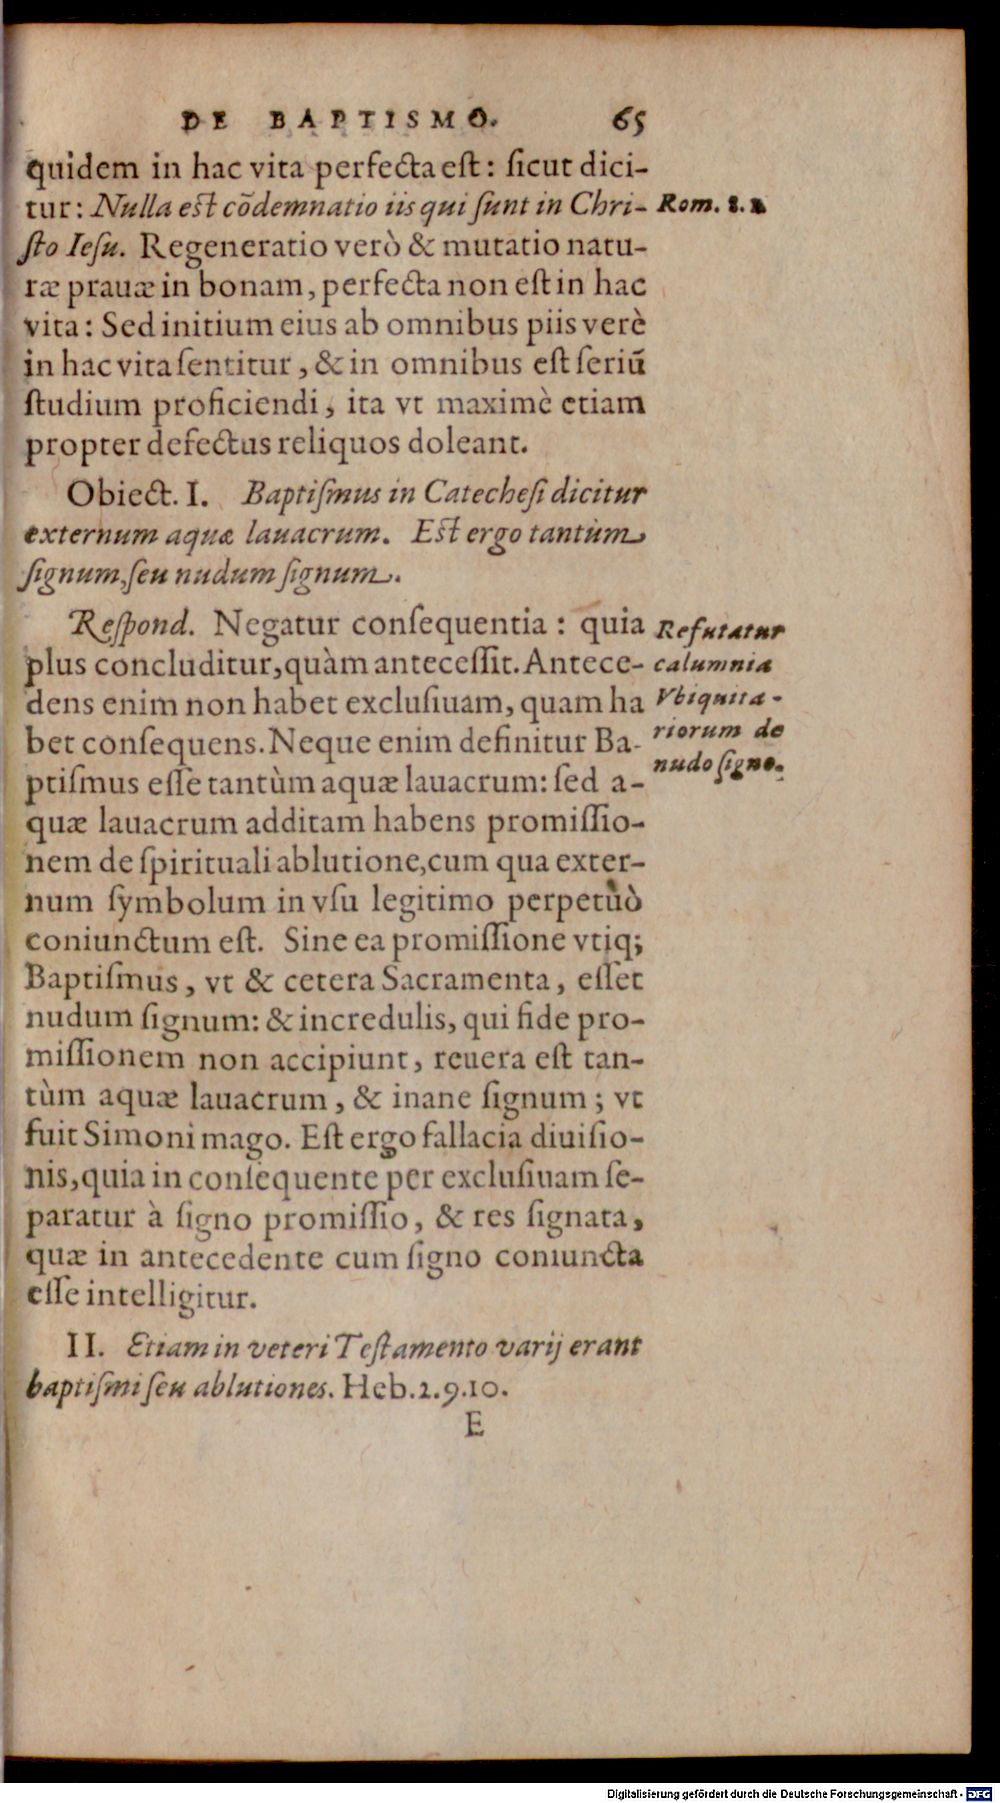 DE BAPTISMO. 65
quidem in hac vita perfecta est: ſicut dici-
tur: Nulla eſt cõdemnatio iis qui ſunt in Chri-
ſto Ieſu. Regeneratio verò & mutatio natu-
ræ prauæ in bonam, perfecta non eſt in hac
vita: Sed initium eius ab omnibus piis verè
in hac vita ſentitur, & in omnibus eſt ſeriũ
ſtudium proficiendi, ita vt maximè etiam
propter defectus reliquos doleant.
Rom. 8. 1
Obiect. I. Baptiſmus in Catecheſi dicitur
externum aquæ lauacrum. Eſt ergo tantùm
ſignum, ſeu nudum ſignum.
Reſpond. Negatur conſequentia: quia
plus concluditur, quàm anteceſſit. Antece-
dens enim non habet excluſiuam, quam ha
bet conſequens. Neque enim definitur Ba-
ptiſmus eſſe tantùm aquæ lauacrum: ſed a-
quæ lauacrum additam habens promiſſio-
nem de ſpirituali ablutione, cum qua exter-
num ſymbolum in vſu legitimo perpetuò
coniunctum eſt. Sine ea promiſſione vtiq;
Baptiſmus, vt & cetera Sacramenta, eſſet
nudum ſignum: & incredulis, qui fide pro-
miſſionem non accipiunt, reuera eſt tan-
tùm aquæ lauacrum, & inane ſignum; vt
fuit Simoni mago. Eſt ergo fallacia diuiſio-
nis, quia in conſequente per excluſiuam ſe-
paratur à ſigno promiſſio, & res ſignata,
quæ in antecedente cum ſigno coniuncta
eſſe intelligitur.
Refutatur
calumnia
Vbiquita-
riorum de
nudo ſigno.
II. Etiam in veteri Teſtamento varij erant
baptiſmi ſeu ablutiones. Heb. 2. 9. 10.
E
Digitalisierung gefördert durch die Deutsche Forschungsgemeinschaft - DFG